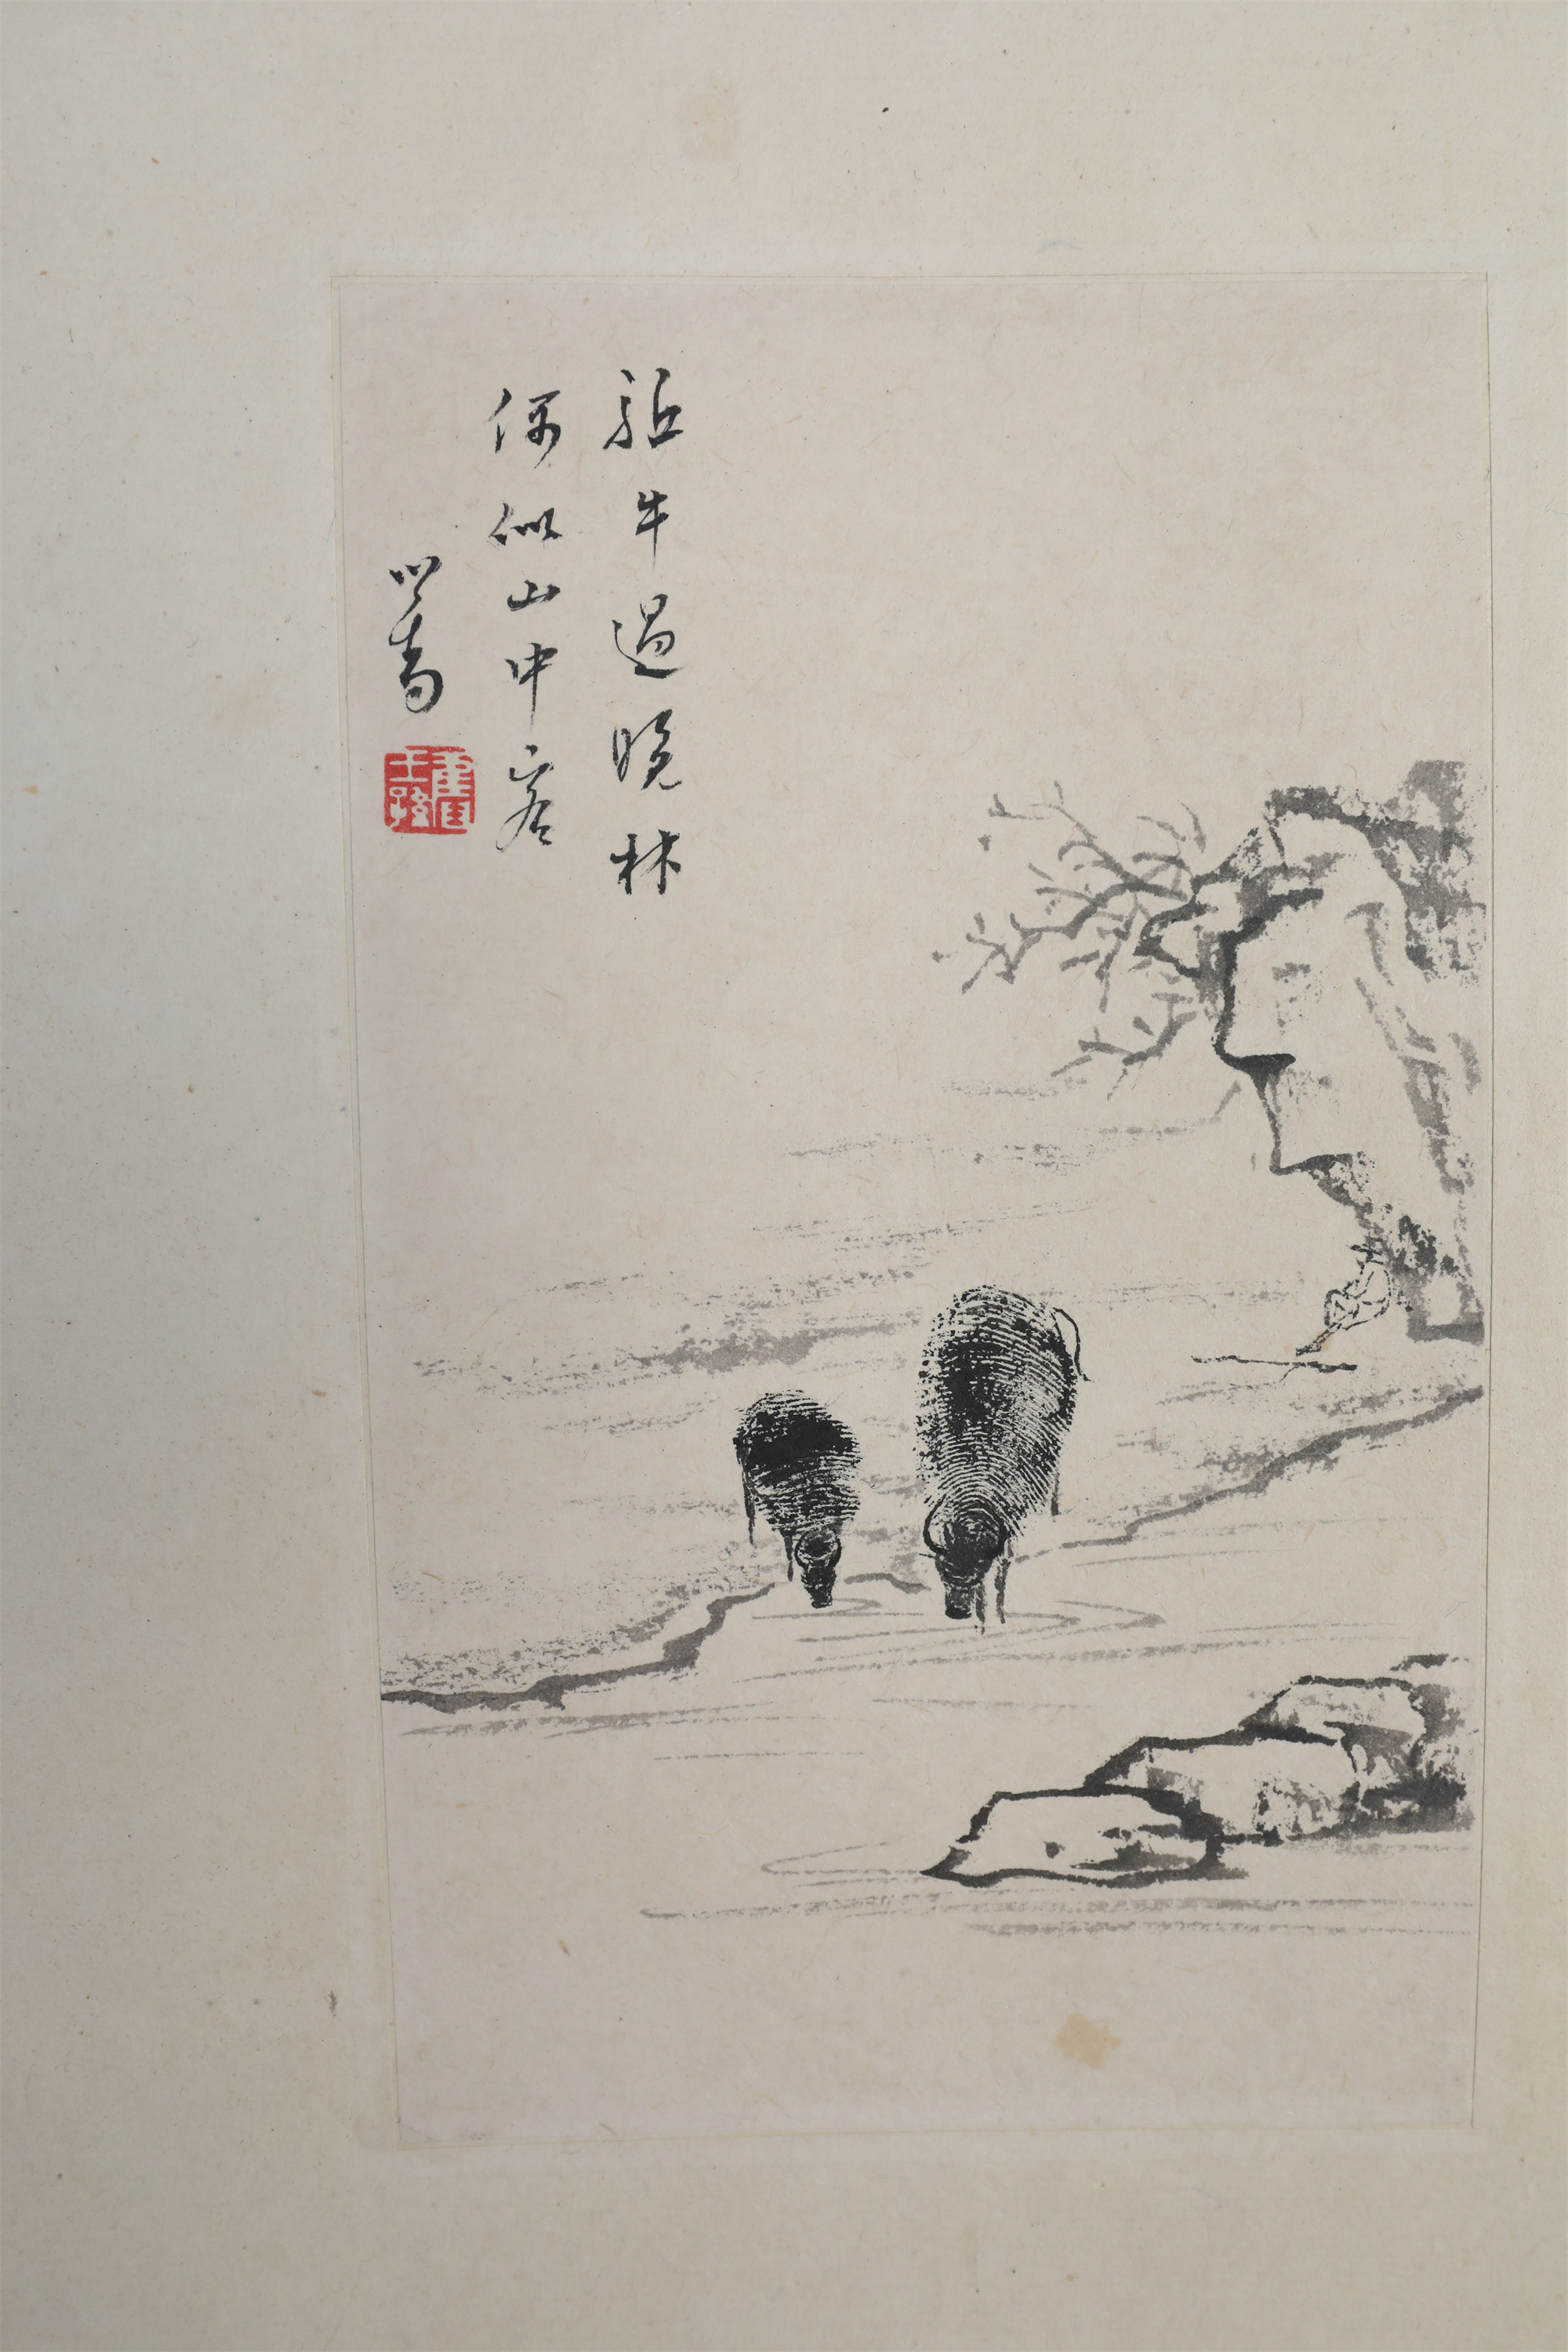 駈牛過晚林
偶似山中客
心畬
舊王孫